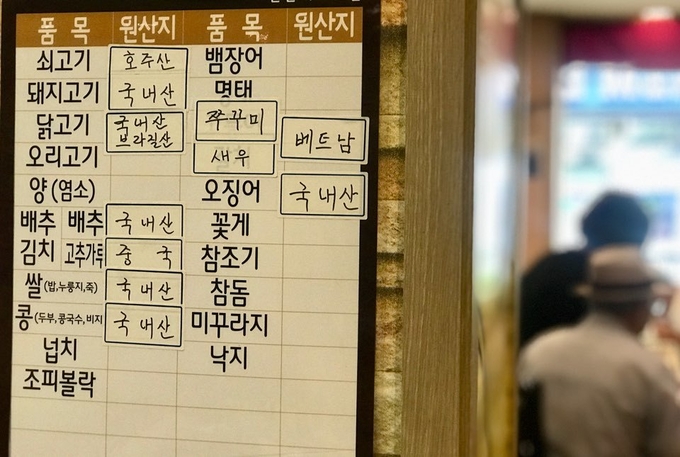 품 목 원산지 품 목 원산지
쇠고기 호주산 뱀장어
돼지고기 국내산 명태
닭고기 국내산 브라질산 쭈꾸미 베트남
오리고기 새우
양 (염소) 오징어 국내산
배추 배추 국내산 꽃게
김치 고추가루 중국 참조기
쌀(밥,누룽지,죽) 국내산 참돔
콩(두부,콩국수,비지 국내산 미꾸라지
넙치 낙지
조피볼락